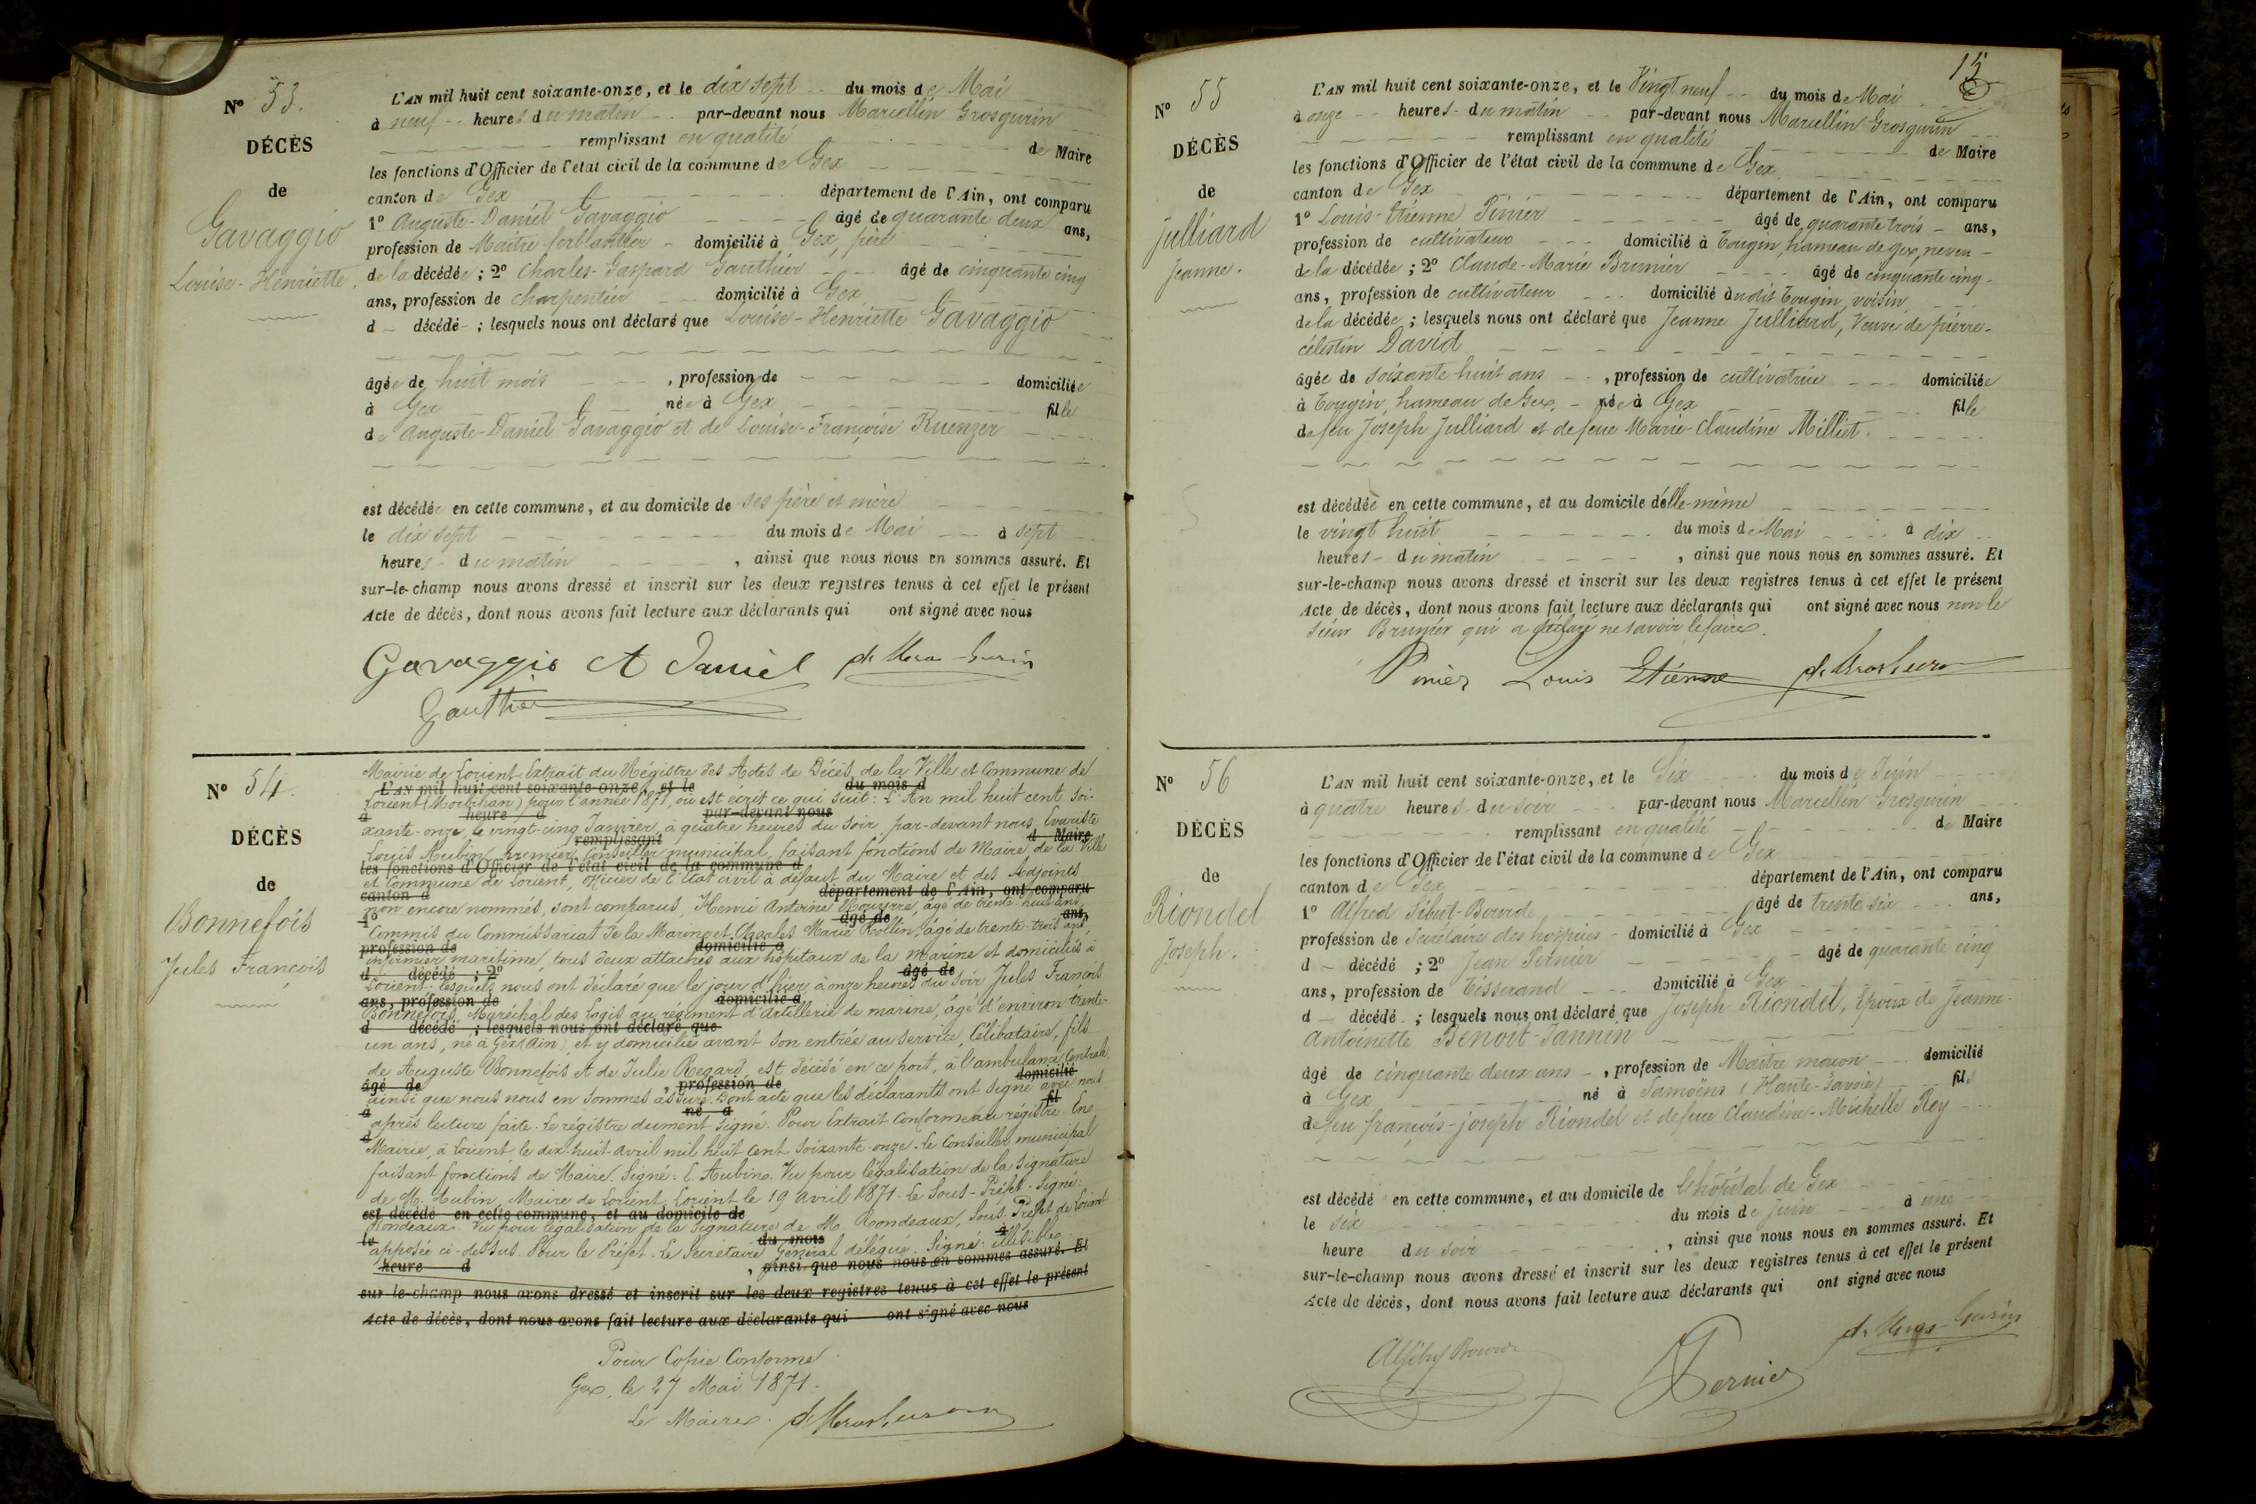 Nº 53.
DÉCÈS
de
Gavaggio
Louise-Henriette.
L'AN mil huit cent soixante-onze, et le dix sept du mois de Mai
à neuf heures du matin par-devant nous Marcellin Grosgurin
remplissant en qualité de Maire
les fonctions d'Officier de l'état civil de la commune de Gex
canton de Gex département de l'Ain, ont comparu
1º Auguste-Daniel Gavaggio âgé de quarante deux ans,
profession de Maître ferblantier domicilié à Gex, père
de la décédée ; 2º Charles-Gaspard Gauthier âgé de cinquante cinq
ans, profession de charpentier domicilié à Gex
d décédé ; lesquels nous ont déclaré que Louise-Henriette Gavaggio
âgée de huit mois , profession de domiciliée
à Gex née à Gex fille
de Auguste-Daniel Gavaggio et de Louise-Françoise Kuenzer
est décédée en cette commune, et au domicile de ses père et mère
le dix sept du mois de Mai à sept
heures du matin , ainsi que nous nous en sommes assuré. Et
sur-le-champ nous avons dressé et inscrit sur les deux registres tenus à cet effet le présent
Acte de décès, dont nous avons fait lecture aux déclarants qui ont signé avec nous
Gavaggio A Daniel
Gauthier
Nº 54.
DÉCÈS
de
Bonnefois
Jules François
Mairie de Lorient. Extrait du Régistre des Actes de Décès de la Ville et Commune de
L'AN mil huit cent soixante-onze, et le du mois d
Lorient (Morbihan) pour l'année 1871, où est écrit ce qui suit : L'An mil huit cent soi-
à heure d par-devant nous
xante-onze, le vingt-cinq Janvier, à quatre heures du soir, par-devant nous, Evariste
remplissant d Maire
Louis Aubin, premier Conseiller municipal, faisant fonctions de Maire de la Ville
les fonctions d'Officier de l'état civil de la commune d
et Commune de Lorient, officier de l'état civil à défaut du Maire et des Adjoints
canton d département de l'Ain, ont comparu
non encore nommés, sont comparus, Henri Antoine âgé de trente huit ans,
1º âgé de ans,
Commis du Commissariat de la Marine et Charles Marie Rollin, âgé de trente-trois ans,
profession de domicilié à
infirmier maritime, tous deux attachés aux hôpitaux de la marine et domiciliés à
d décédé ; 2º âgé de
Lorient ; lesquels nous ont déclaré que le jour d'hier, à onze heures du soir Jules François
ans, profession de domicilié à
Bonnefois, Maréchal des Logis au régiment d'artillerie de marine, âgé d'environ trente-
d décédé ; lesquels nous ont déclaré que
un ans, né à Gex (Ain), et y domicilié avant son entrée au service, Célibataire, fils
de Auguste Bonnefois et de Julie Regard, est décédé en ce port, à l'ambulance Centrale
âgé de , profession de domicilié
ainsi que nous nous en sommes assuré. Dont acte que les déclarants ont signé avec nous
à né à fil
après lecture faite. Le régistre dument signé. Pour Extrait conforme au régistre. En
d
Mairie, à Lorient le dix-huit avril mil huit cent soixante-onze. Le Conseiller municipal
faisant fonctions de Maire. Signé : E. Aubin. Vu pour légalisation de la signature
de M. Aubin, Maire de Lorient. Lorient le 19 avril 1871. Le Sous-Préfet. Signé :
est décédé en cette commune, et au domicile de
Rondeaux. Vu pour légalisation de la signature de M. Rondeaux, Sous-Préfet de Lorient
le du mois à
apposée ci-dessus. Pour le Préfet. Le Secrétaire Général délégué. Signé : illisible.
heure d , ainsi que nous nous en sommes assuré. Et
sur-le-champ nous avons dressé et inscrit sur les deux registres tenus à cet effet le présent
Acte de décès, dont nous avons fait lecture aux déclarants qui ont signé avec nous
Pour Copie Conforme
Gex, le 27 Mai 1871.
Le Maire.
15
Nº 55
DÉCÈS
de
Julliard
Jeanne.
L'AN mil huit cent soixante-onze, et le Vingt neuf du mois de Mai
à onze heures du matin par-devant nous Marcellin Grosgurin
remplissant en qualité de Maire
les fonctions d'Officier de l'état civil de la commune de Gex
canton de Gex département de l'Ain, ont comparu
1º Louis-Etienne Pinier âgé de quarante trois ans,
profession de cultivateur domicilié à Tougin, hameau de Gex, neveu
de la décédée ; 2º Claude-Marie Brunier âgé de cinquante cinq
ans, profession de cultivateur domicilié audit Tougin, voisin
de la décédée ; lesquels nous ont déclaré que Jeanne Julliard, Veuve de pierre-
célestin David
âgée de soixante huit ans , profession de cultivatrice domiciliée
à Tougin, hameau de Gex, née à Gex fille
de feu Joseph Julliard et de feue Marie-Claudine Milliet.
est décédée en cette commune, et au domicile d'elle-même
le vingt huit du mois de Mai à dix
heures du matin , ainsi que nous nous en sommes assuré. Et
sur-le-champ nous avons dressé et inscrit sur les deux registres tenus à cet effet le présent
Acte de décès, dont nous avons fait lecture aux déclarants qui ont signé avec nous non le
sieur Brunier qui a déclaré ne savoir le faire.
Pinier Louis Etienne
Nº 56
DÉCÈS
de
Riondel
Joseph.
L'AN mil huit cent soixante-onze, et le Six du mois de Juin
à quatre heures du soir par-devant nous Marcellin Grosgurin
remplissant en qualité de Maire
les fonctions d'Officier de l'état civil de la commune de Gex
canton de Gex département de l'Ain, ont comparu
1º Alfred Sibut-Bourde âgé de trente six ans,
profession de Secrétaire des hospices domicilié à Gex
d décédé ; 2º Jean Pernier âgé de quarante cinq
ans, profession de Tisserand domicilié à Gex
d décédé ; lesquels nous ont déclaré que Joseph Riondel, Epoux de Jeanne-
Antoinette Benoit-Jannin
âgé de cinquante deux ans , profession de Maître maçon domicilié
à Gex né à Samoëns (Haute-Savoie) fils
de feu françois-joseph Riondel et de feue Claudine-Michelle Rey
est décédé en cette commune, et au domicile de l'hôpital de Gex
le six du mois de Juin à une
heure du soir , ainsi que nous nous en sommes assuré. Et
sur-le-champ nous avons dressé et inscrit sur les deux registres tenus à cet effet le présent
Acte de décès, dont nous avons fait lecture aux déclarants qui ont signé avec nous
Pernier